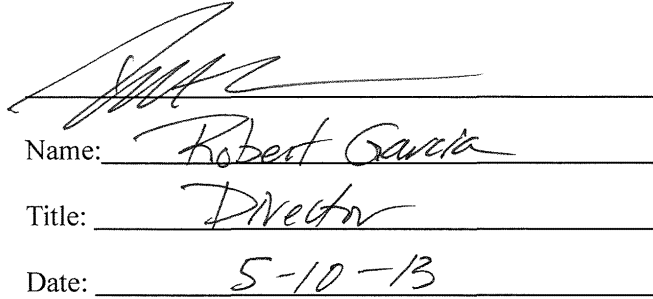 Name: Robert Garcia
Title: Director
Date: 5-10-13